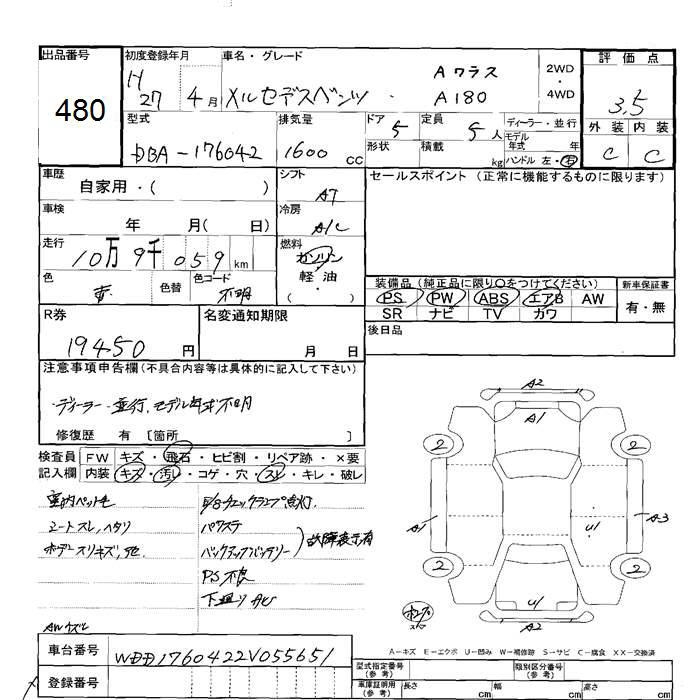 出品番号
480
初度登録年月
H27 4月
車名・グレード
メルセデスベンツ ・ Aクラス A180
2WD
・
4WD
評価点
3.5
外装 内装
C C
型式
DBA-176042
排気量
1600 CC
ドア 5
定員 5人
形状
積載 kg
ディーラー・並行
モデル年式 年
ハンドル 左・右
車歴
自家用・( )
シフト
AT
車検
年 月( 日)
冷房
A/C
走行
10万9千059km
燃料
ガソリン
・
軽油
・
( )
色
色替
色コード
不明
セールスポイント (正常に機能するものに限ります)
装備品 (純正品に限り○をつけてください)
PS PW ABS エアB AW
SR ナビ TV カワ
新車保証書
有・無
後日品
R券
19450円
名変通知期限
月 日
注意事項申告欄(不具合内容等は具体的に記入して下さい)
・ディーラー・並行、モデル年式不明
修復歴 有 [箇所 ]
検査員 FW キズ・飛石・ヒビ割・リペア跡・×要
記入欄 内装 キズ・汚レ・コゲ・穴・スレ・キレ・破レ
室内ペット毛
シートスレ、ヘタリ
ボデースリキズ、
チェックランプ点灯
パワステ
バックアップバッテリー
故障表示有
PS不良
下廻りサビ
AWキズ
A2
A1
2
2
A1
U1
A3
2
2
U1
A2
A−キズ E−エクボ U−凹み W−補修跡 S−サビ C−腐食 XX−交換済
車台番号
WDD1760422V055651
登録番号
型式指定番号(参考)
類別区分番号(参考)
車庫証明用(参考) 長さ cm 幅 cm 高さ cm